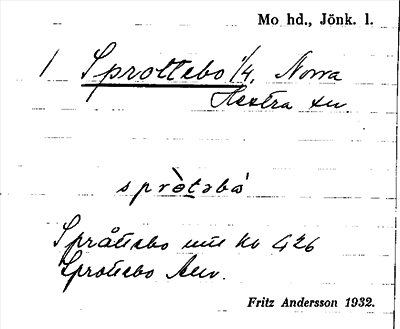 Mo hd., Jönk. l.
1 Sprottebo 1/4, Norra
Hestra sn
spròtəbó
Språttebo
Sprottebo
Fritz Andersson 1932.